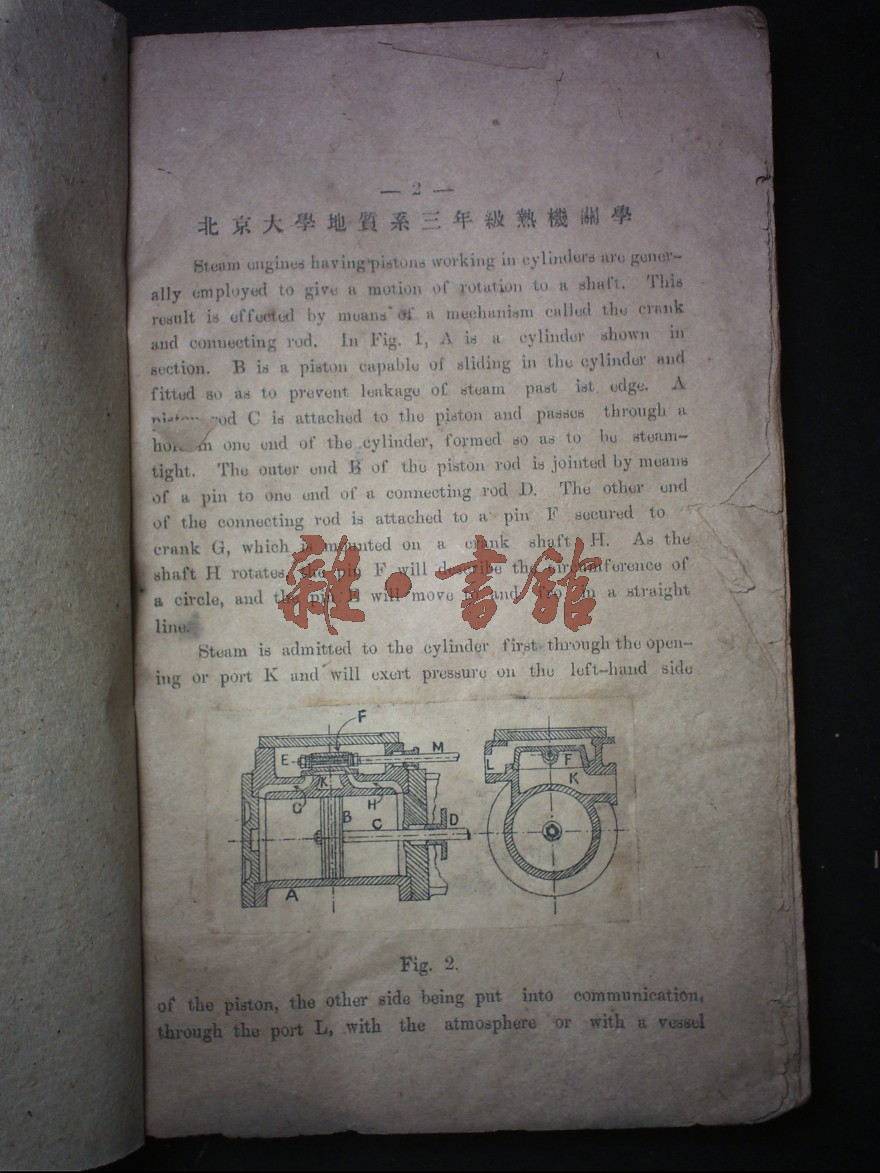 — 2 —
北京大學地質系三年級熱機關學
Steam engines having pistons working in cylinders are gener-
ally employed to give a motion of rotation to a shaft. This
result is effected by means of a mechanism called the crank
and connecting rod. In Fig. 1, A is a cylinder shown in
section. B is a piston capable of sliding in the cylinder and
fitted so as to prevent leakage of steam past ist edge. A
piston rod C is attached to the piston and passes through a
in one end of the cylinder, formed so as to be steam-
tight. The outer end B of the piston rod is jointed by means
of a pin to one end of a connecting rod D. The other end
of the connecting rod is attached to a pin F secured to
crank G, which is mounted on a crank shaft H. As the
shaft H rotates, the pin F will describe the circumference of
a circle, and the pin E will move to and fro in a straight
line.
Steam is admitted to the cylinder first through the open-
ing or port K and will exert pressure on the left-hand side
F
E
M
K
G
H
B
C
D
A
L
F
K
Fig. 2.
of the piston, the other side being put into communication,
through the port L, with the atmosphere or with a vessel
雜·書館